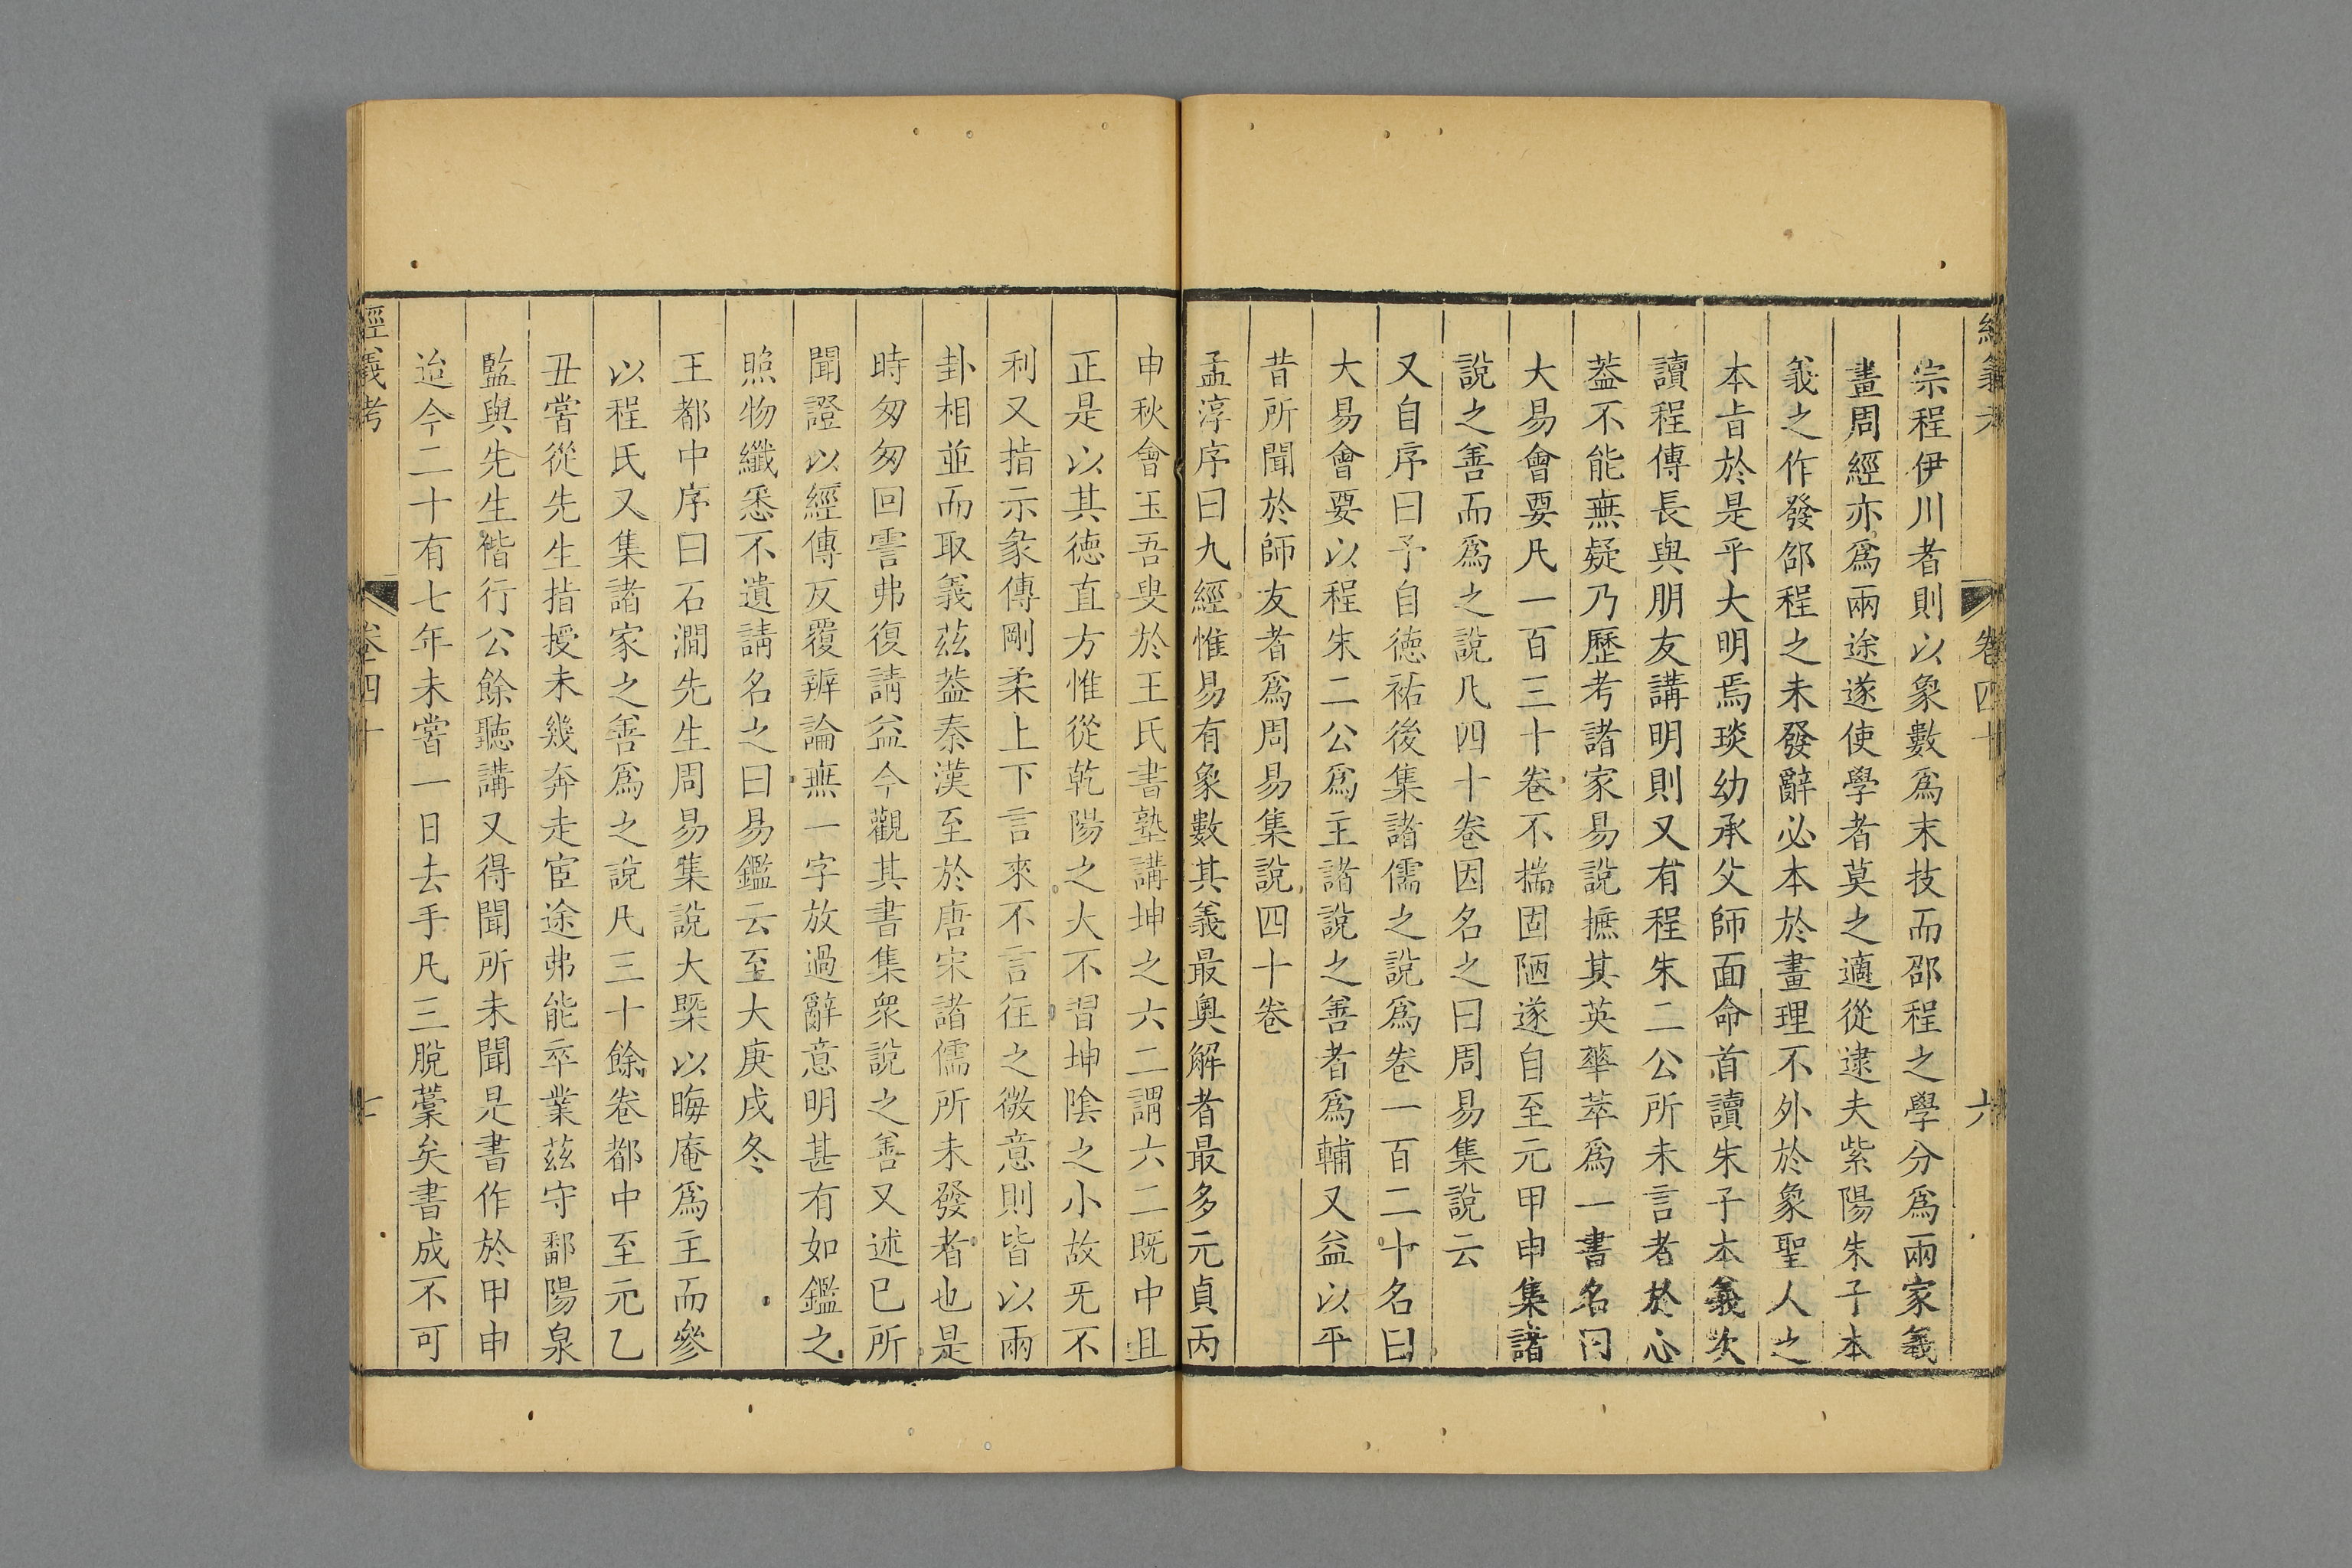 經義考 卷四十 六
宗程伊川者則以象數爲末技而邵程之學分爲兩家羲
畫周經亦爲兩途遂使學者莫之適從逮夫紫陽朱子本
義之作發邵程之未發辭必本於畫理不外於象聖人之
本旨於是乎大明焉琰幼承父師面命首讀朱子本義次
讀程傳長與朋友講明則又有程朱二公所未言者於心
葢不能無疑乃歷考諸家易說摭其英華萃爲一書名曰
大易會要凡一百三十卷不揣固陋遂自至元甲申集諸
說之善而爲之說凡四十卷因名之曰周易集說云
又自序曰予自德祐後集諸儒之說爲卷一百二十名曰
大易會要以程朱二公爲主諸說之善者爲輔又益以平
昔所聞於師友者爲周易集說四十卷
孟淳序曰九經惟易有象數其義最奧解者最多元貞丙
申秋會玉吾叟於王氏書塾講坤之六二謂六二既中且
正是以其德直方惟從乾陽之大不習坤陰之小故旡不
利又指示彖傳剛柔上下言來不言往之微意則皆以兩
卦相並而取義茲葢秦漢至於唐宋諸儒所未發者也是
時匆匆回霅弗復請益今觀其書集衆說之善又述已所
聞證以經傳反覆辨論無一字放過辭意明甚有如鑑之
照物纖悉不遺請名之曰易鑑云至大庚戌冬
王都中序曰石澗先生周易集說大槩以晦庵爲主而參
以程氏又集諸家之善爲之說凡三十餘卷都中至元乙
丑嘗從先生指授未幾奔走宦途弗能卒業茲守鄱陽泉
監與先生偕行公餘聽講又得聞所未聞是書作於甲申
迨今二十有七年未嘗一日去手凡三脫藳矣書成不可
經義考 卷四十 七